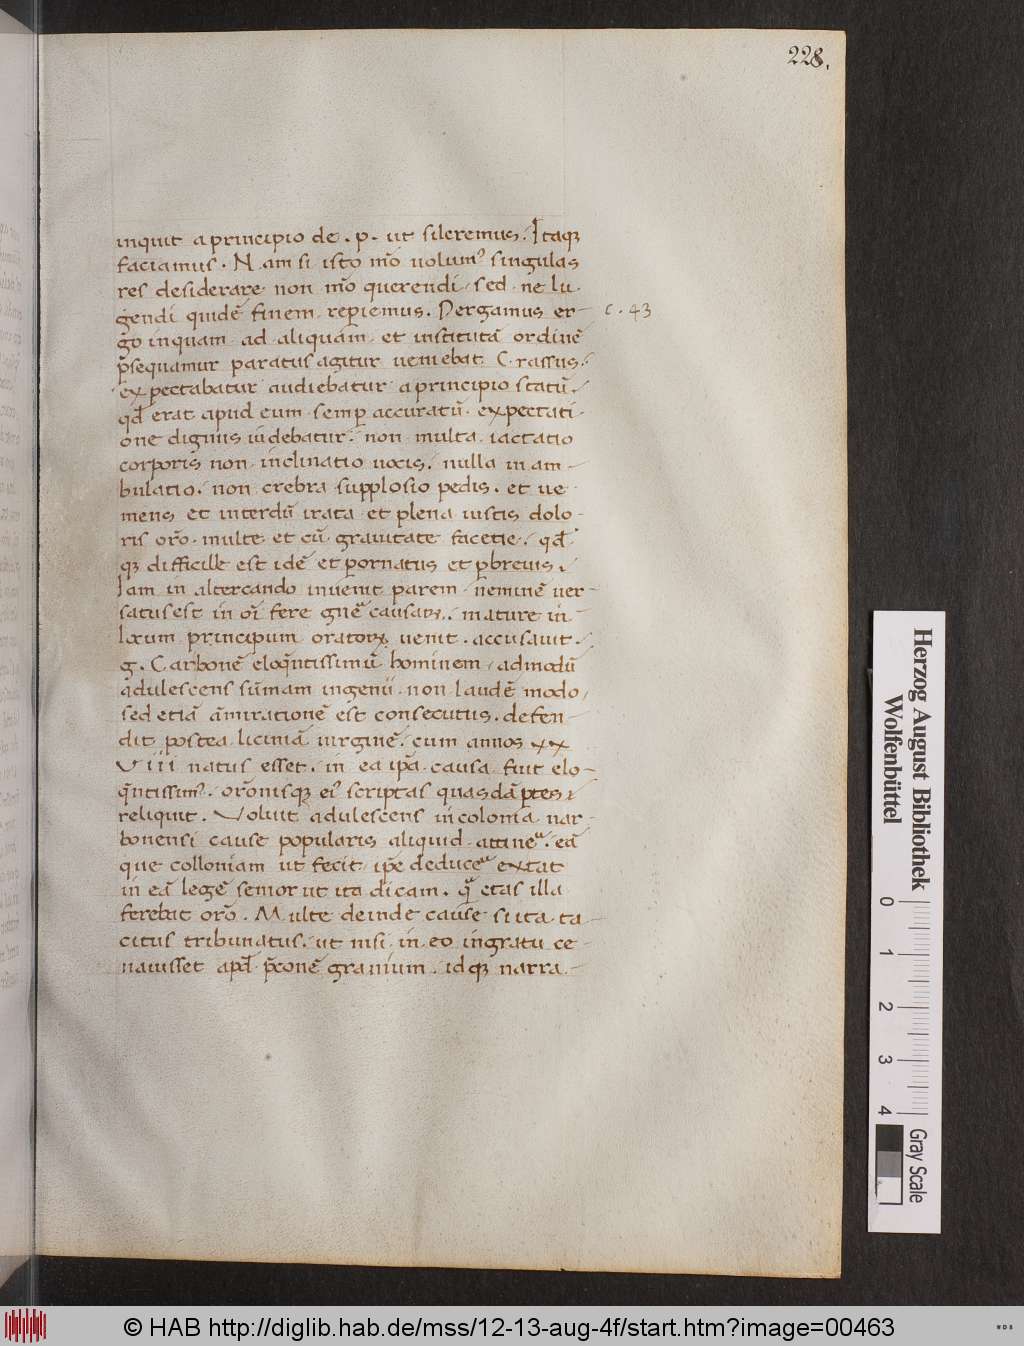 228.
inquit a principio de . p . ut sileremus . Itaqꝫ
faciamus . N am si isto mõ uolumꝰ singulas
res desiderare non mõ querendi . sed ne lu
gendi quidẽ finem repiemus . Pergamus er-
c . 43
go inquam ad aliquam et institutã ordinẽ
p̃sequamur paratus agitur ueniebat C rassus .
expectabatur audiebatur a principio statũ .
qđ erat apud eum semp accuratũ . expectati
one dignus uidebatur . non multa iactatio
corporis non inclinatio uocis . nulla in am -
bulatio . non crebra supplosio pedis . et ue
mens et interdũ irata et plena iustis dolo
ris orõ . multe et cũ grauitate facetie . qđ
qꝫ difficille est idẽ et pornatus et pbreuis .
I am in altercando inuenit parem neminẽ uer -
satus est in oĩ fere gñe causaꝝ . mature in
locum principum oratoꝝ uenit . accusauit .
g . C arbonẽ eloq̃ntissimũ hominem admodũ
adulescens sũmam ingenii non laudẽ modo ,
sed etiã ãmirationẽ est consecutus . defen -
dit postea liciniã uirginẽ . cum annos xx
V iii natus esset . in ea ip̃a causa fuit elo -
q̃ntissimꝰ . orõnisqꝫ eiꝰ scriptas quasdã ptes
reliquit . Voluit adulescens in colonia nar -
bonensi cause popularis aliquid attineᷓ . eã
que colloniam ut fecit ip̃e deduceᷓ extat
in eã legẽ senior ut ita dicam . qᷓ etas illa
ferebat orõ . M ulte deinde cause si ita ta -
citus tribunatus . ut nisi in eo ingratu ce -
nauisset apđ p̃conẽ granium . idqꝫ narra -
Herzog August Bibliothek
Wolfenbüttel
0 1 2 3 4
Gray Scale
© HAB http://diglib.hab.de/mss/12-13-aug-4f/start.htm?image=00463